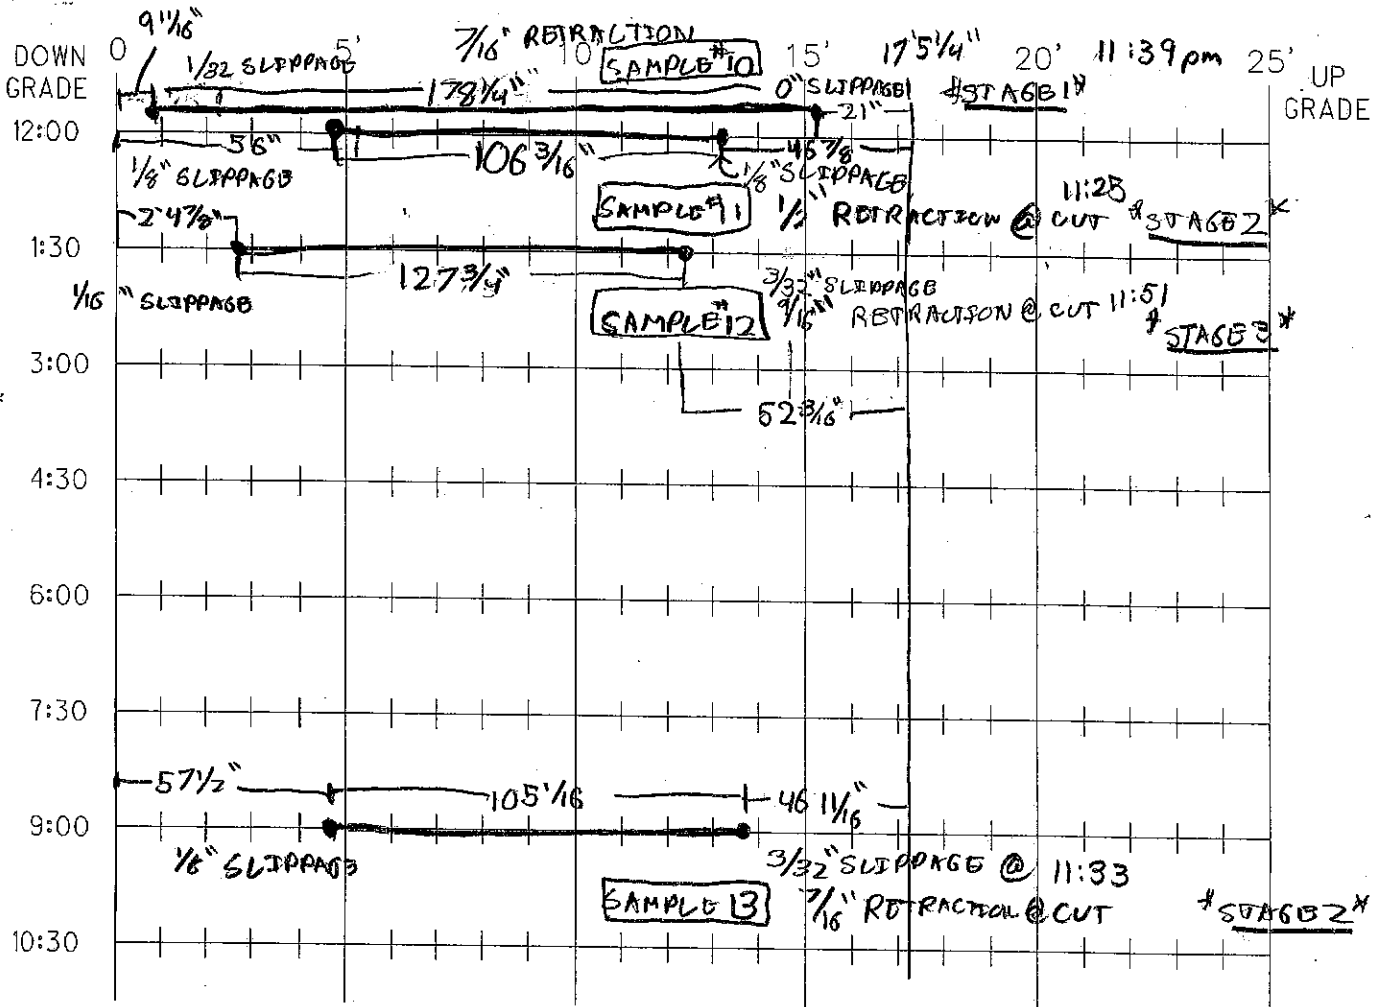 9 11/16"
7/16" RETRACTION
DOWN GRADE 0 5' 10' 15' 17'5 1/4" 20' 11:39pm 25' UP GRADE
SAMPLE #10
1/32 SLIPPAGE 178 1/4" 0" SLIPPAGE *STAGE 1*
21"
12:00
56" 106 3/16" 46 7/8
1/8" SLIPPAGE 1/8" SLIPPAGE
SAMPLE #11 1/2" RETRACTION @ CUT 11:25 *STAGE 2*
2'4 7/8"
1:30
127 3/4"
1/16" SLIPPAGE 3/32" SLIPPAGE
SAMPLE #12 9/16" RETRACTION @ CUT 11:51
*STAGE 3*
3:00
52 3/16"
4:30
6:00
7:30
57 1/2" 105 1/16 46 11/16"
9:00
1/8" SLIPPAGE 3/32" SLIPPAGE @ 11:33
SAMPLE 13 7/16" RETRACTION @ CUT *STAGE 2*
10:30